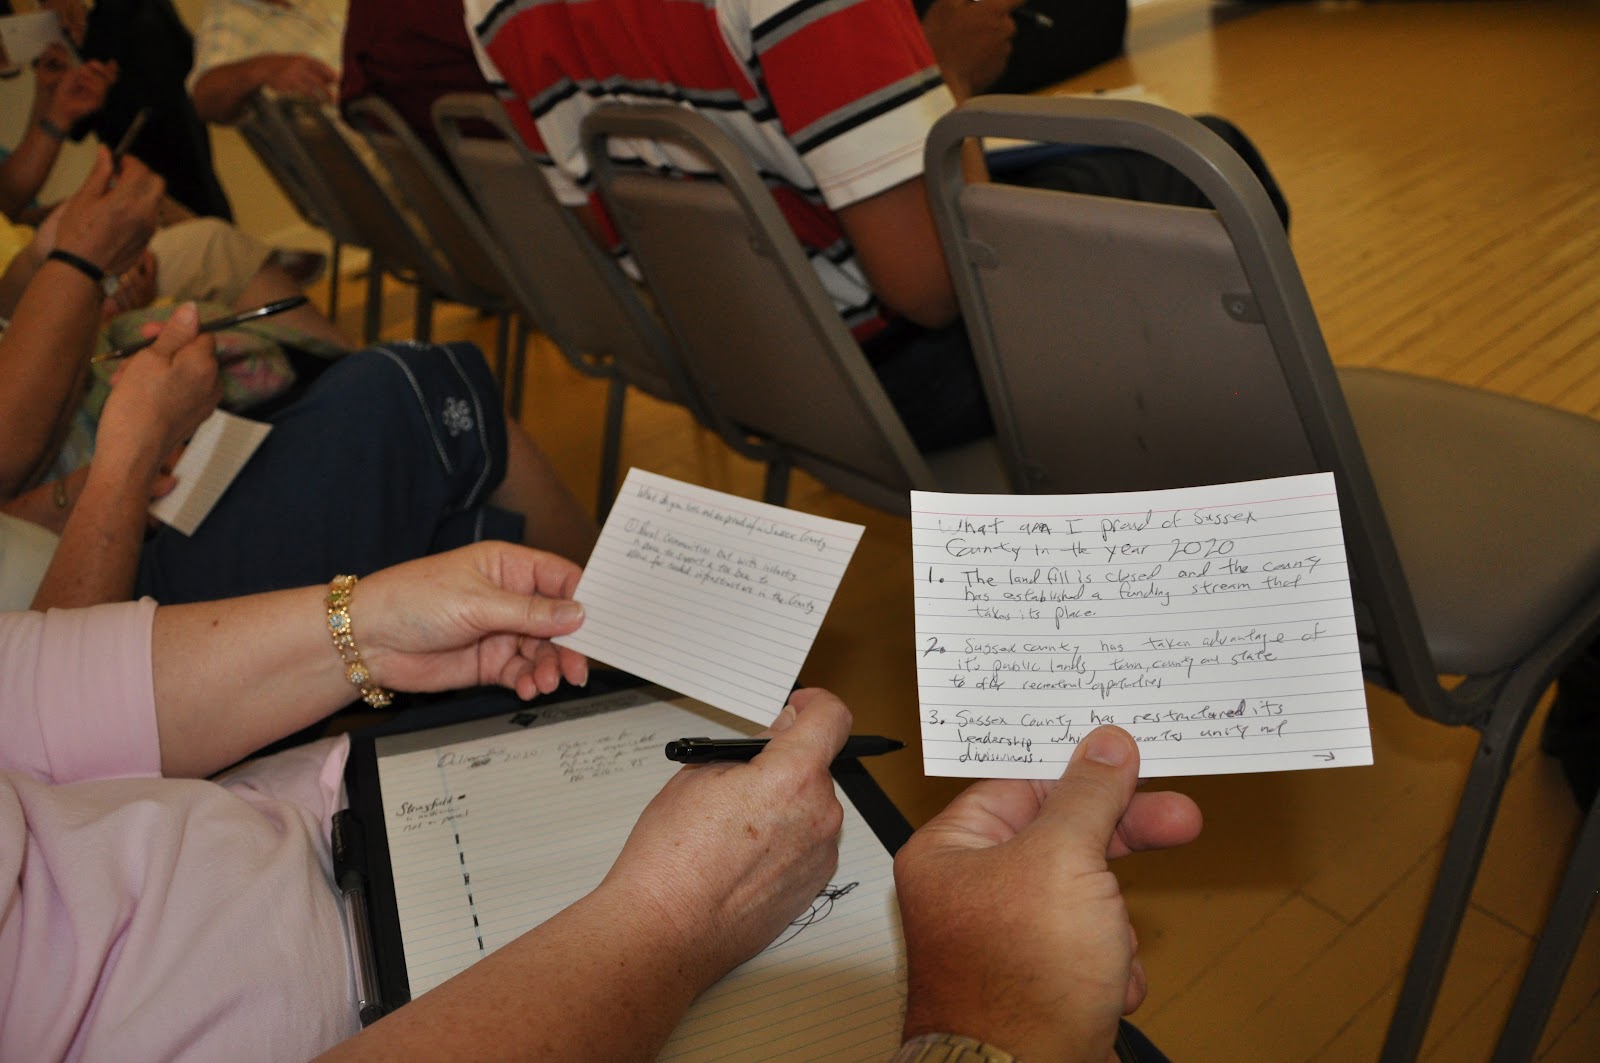 What do you
proud of in Sussex County
① Rural Communities but with industry
in place to support a tax base to
allow for needed infrastructure in the County
What am I proud of Sussex
County in the year 2020
1. The land fill is closed and the county
has established a funding stream that
takes its place.
2. Sussex County has taken advantage of
its public lands, town, county and state
to offer recreational opportunities
3. Sussex County has restructured its
leadership whi unity not
divisiveness.
→
2020
Stringfield
not a panel